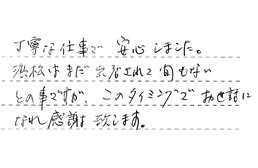 丁寧な仕事で 安心しました。
浜松はまだ出店されて間もない
との事ですが、このタイミングでお世話に
なれ感謝致します。